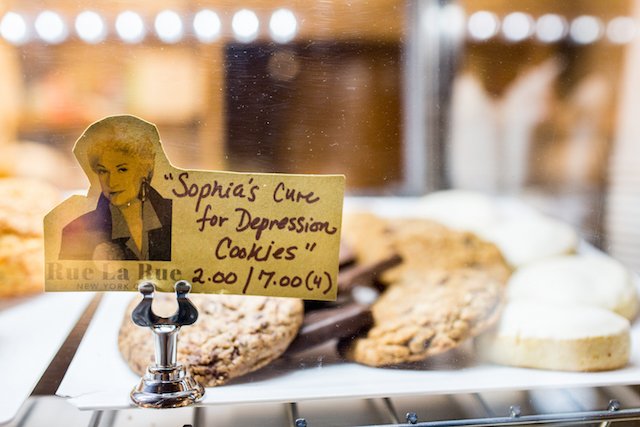 "Sophia's Cure
for Depression
Cookies"
2.00/7.00(4)
Rue La Rue
NEW YORK